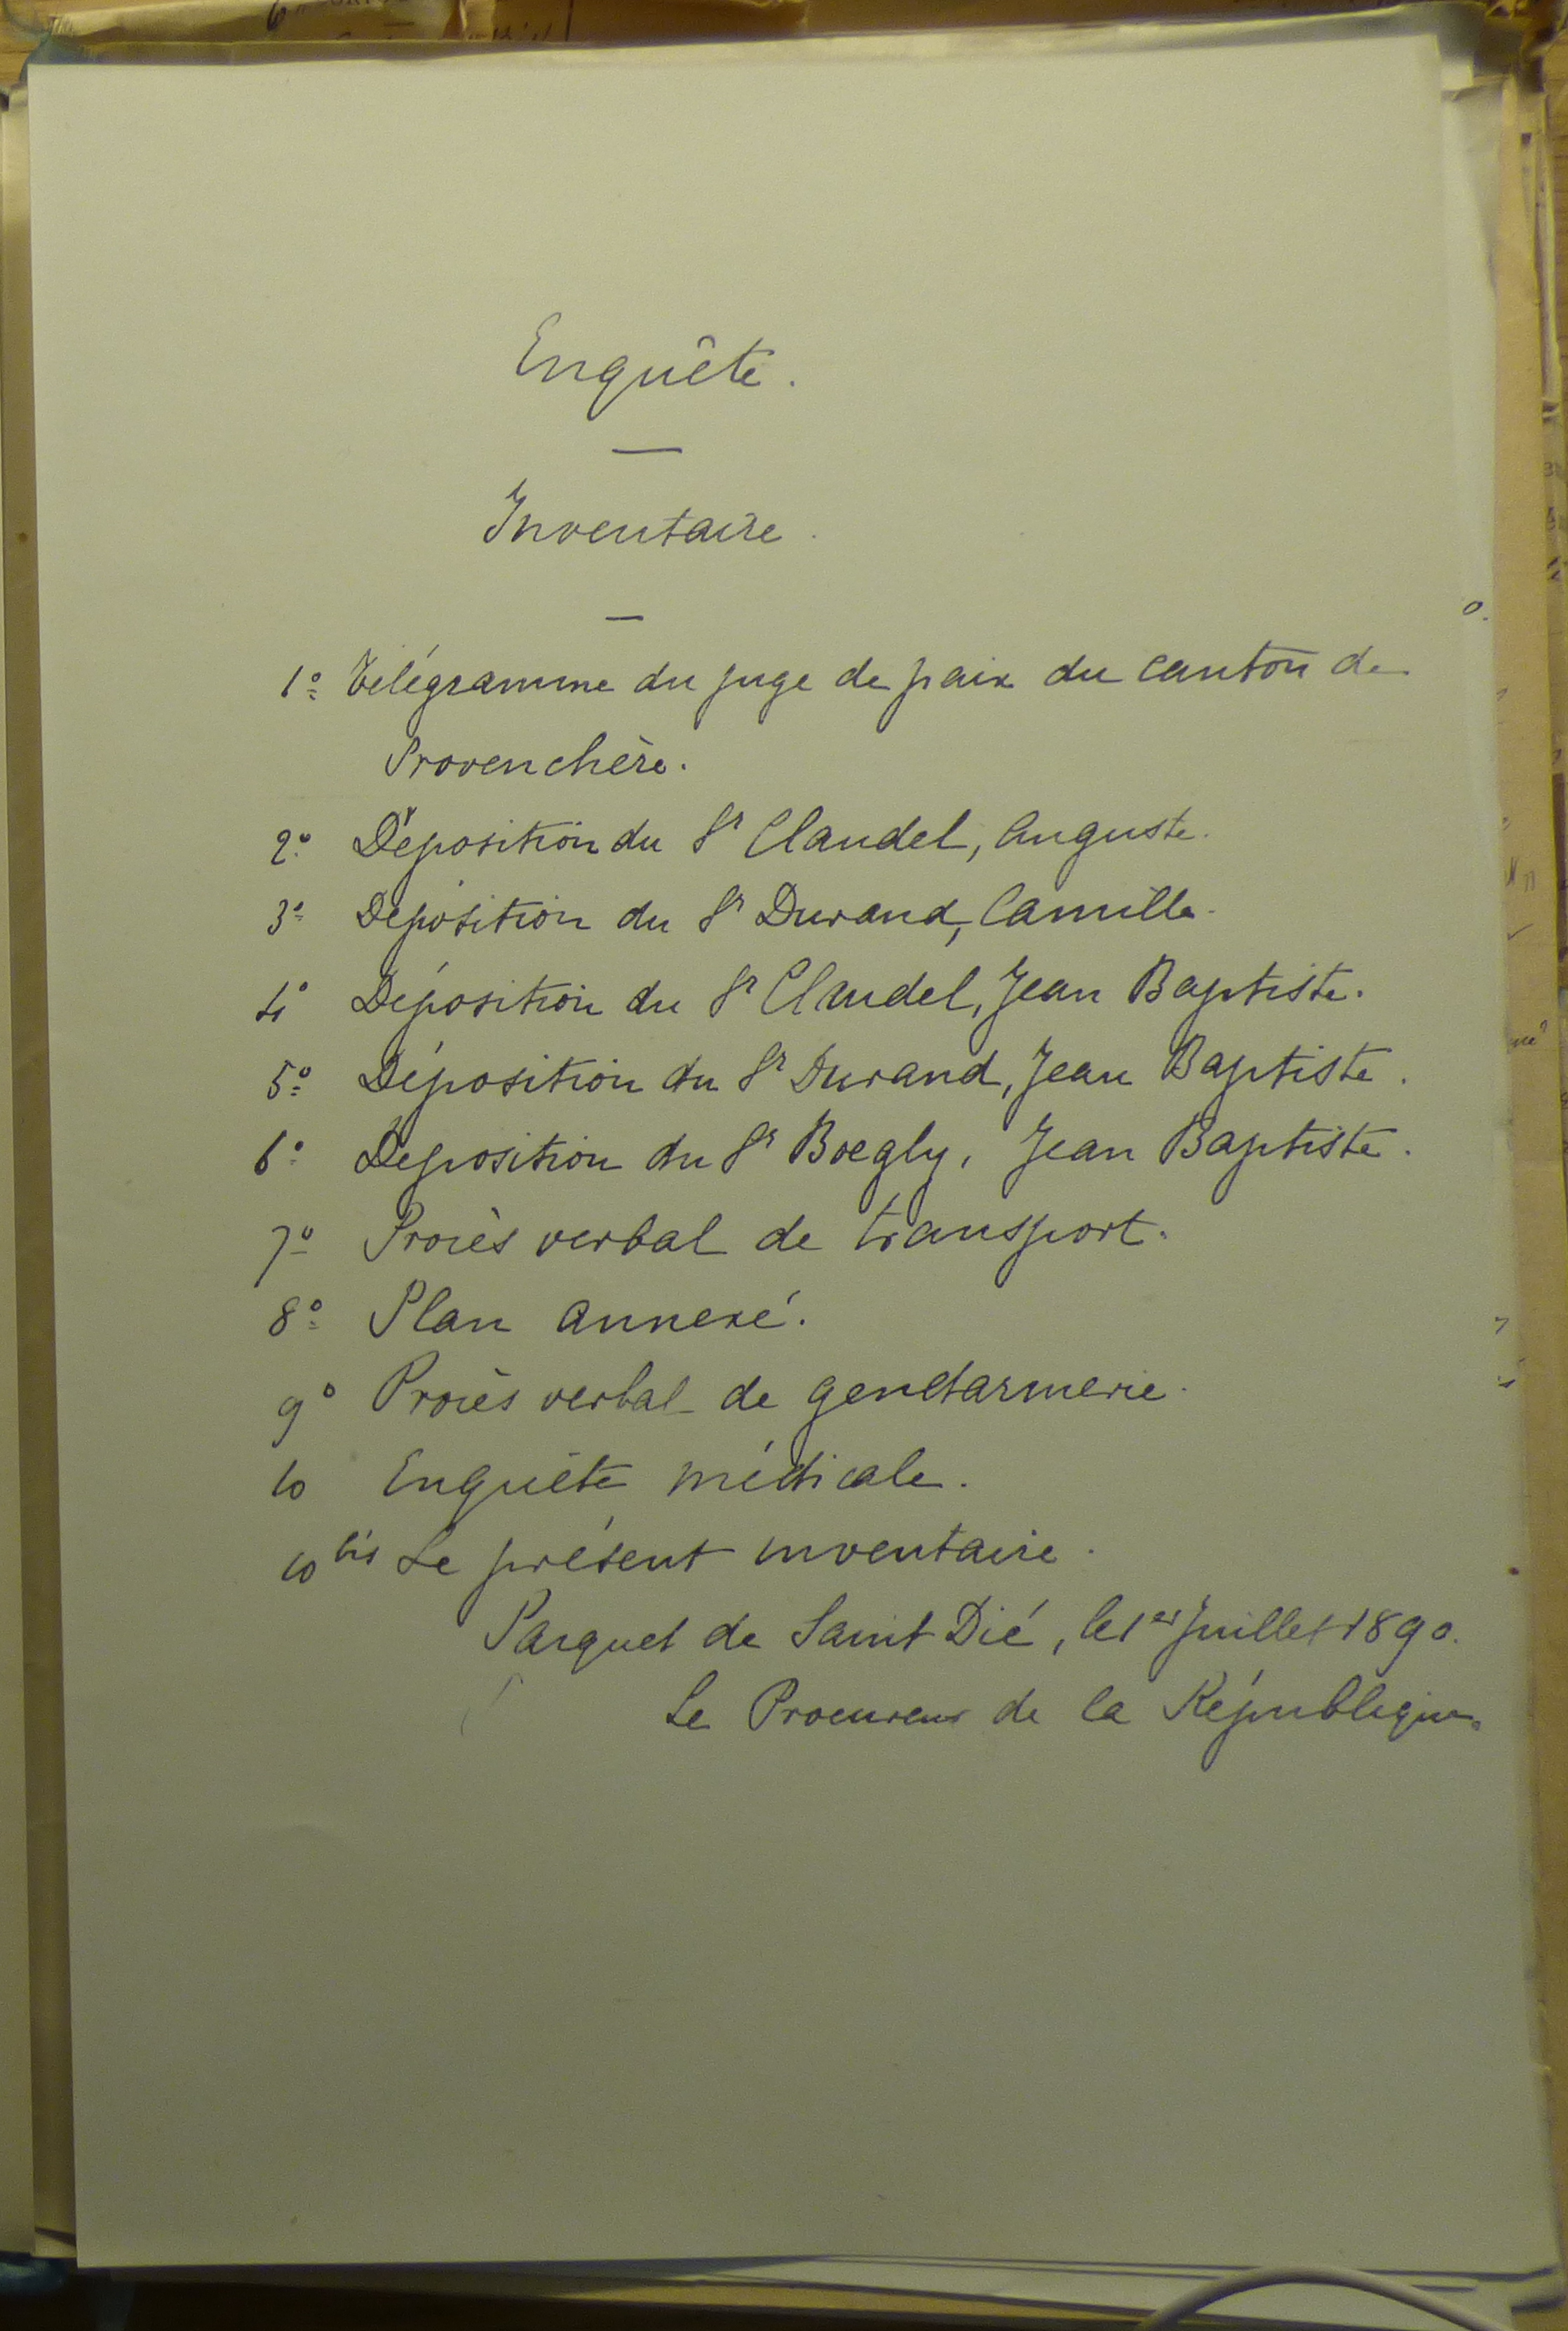 Enquête.
Inventaire.
1° Télégramme du juge de paix du canton de
Provenchère.
2° Déposition du Sr Claudel, Auguste.
3° Déposition du Sr Durand, Camille.
4° Déposition du Sr Claudel, Jean Baptiste.
5° Déposition du Sr Durand, Jean Baptiste.
6° Déposition du Sr Boegly, Jean Baptiste.
7° Procès verbal de transport.
8° Plan annexé.
9° Procès verbal de gendarmerie.
10 Enquête médicale.
10 bis Le présent inventaire.
Parquet de Saint Dié, le 1er Juillet 1890.
Le Procureur de la République.